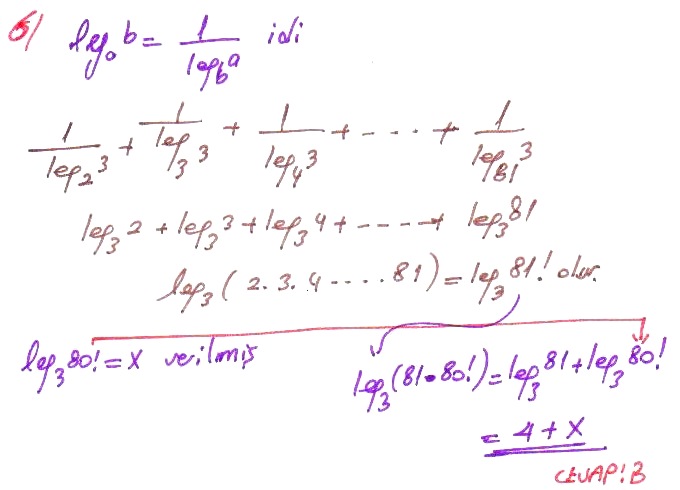 6) log_a b = 1 / log_b a idi
1/log_2 3 + 1/log_3 3 + 1/log_4 3 + ---- + 1/log_81 3
log_3 2 + log_3 3 + log_3 4 + ---- + log_3 81
log_3 (2.3.4 ---- 81) = log_3 81! olur.
log_3 80! = x verilmiş
log_3 (81.80!) = log_3 81 + log_3 80!
= 4 + x
CEVAP: B